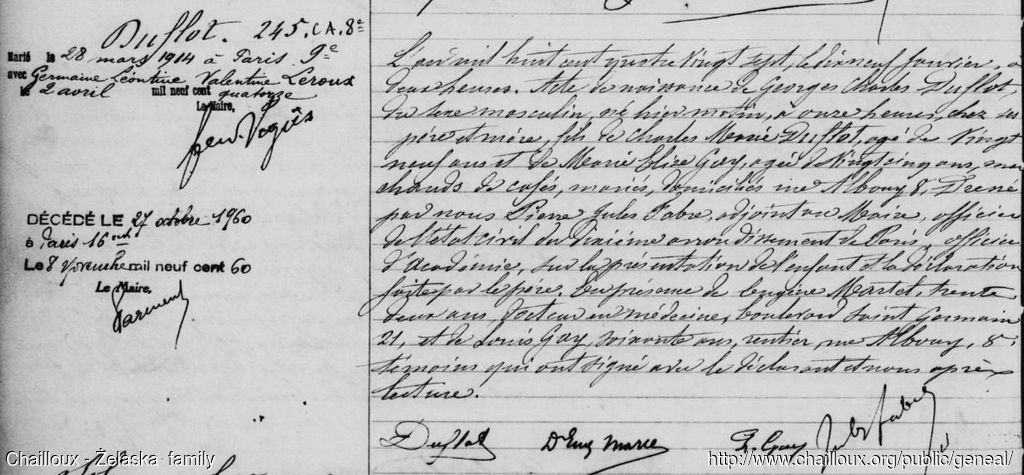 Duflot. 245. C.A. 8e
Marié le 28 mars 1914 à Paris 9e
avec Germaine Léontine Valentine Leroux
le 2 avril mil neuf cent quatorze
Le Maire,
DÉCÉDÉ LE 27 octobre 1960
à Paris 16
Le 8 Novembre mil neuf cent 60
Le Maire,
Parment
L'an mil huit cent quatre vingt sept, le dix neuf fevrier, à
deux heures. Acte de naissance de Georges Charles Duflot,
du sexe masculin, né hier matin, à onze heures, chez ses
père et mère, fils de Charles Marie Duflot, agé de vingt
neuf ans et de Marie Elise Gay, agée de vingt cinq ans, mar
chands de cafés, mariés, domiciliés rue Albouy, 8. Dressé
par nous Pierre Jules Fabre, adjoint au Maire, officier
de l'état civil du dixième arrondissement de Paris, officier
d'Académie, sur la présentation de l'enfant et la déclaration
faite par le père. En présence de Eugène Martet, trente
deux ans, docteur en médecine, boulevard Saint Germain
21, et de Louis Gay, soixante ans, rentier, rue Albouy, 8;
témoins qui ont signé avec le déclarant et nous après
lecture.
Duflot Dr Eug L. Gay Jules Fabre
Chailloux - Żelaska family
http://www.chailloux.org/public/geneal/